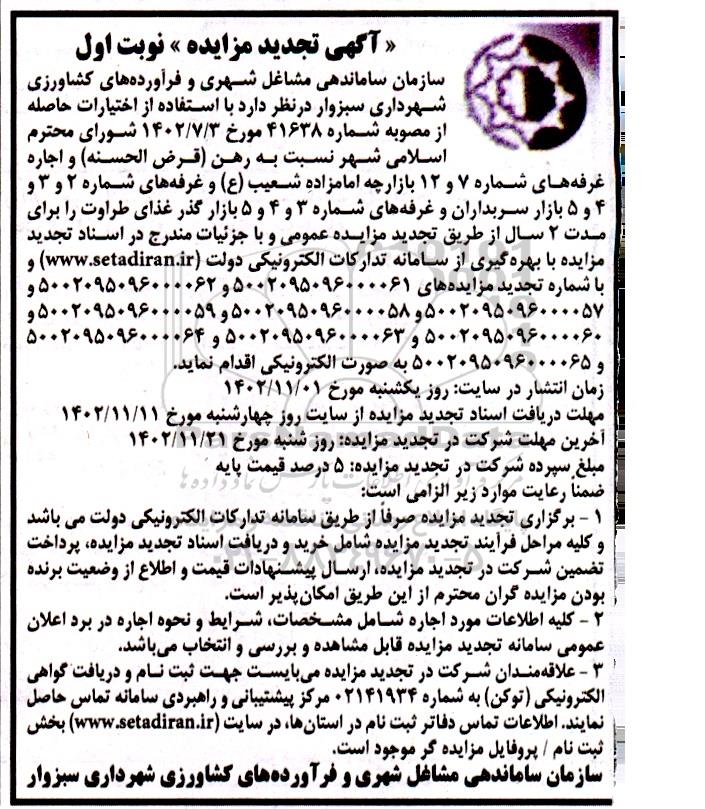 « آگهی تجدید مزایده » نوبت اول
سازمان ساماندهی مشاغل شهری و فرآورده‌های کشاورزی
شهرداری سبزوار درنظر دارد با استفاده از اختیارات حاصله
از مصوبه شماره ۴۱۶۳۸ مورخ ۱۴۰۲/۷/۳ شورای محترم
اسلامی شهر نسبت به رهن (قرض الحسنه) و اجاره
غرفه‌های شماره ۷ و ۱۲ بازارچه امامزاده شعیب (ع) و غرفه‌های شماره ۲ و ۳ و
۴ و ۵ بازار سربداران و غرفه‌های شماره ۳ و ۴ و ۵ بازار گذر غذای طراوت را برای
مدت ۲ سال از طریق تجدید مزایده عمومی و با جزئیات مندرج در اسناد تجدید
مزایده با بهره‌گیری از سامانه تدارکات الکترونیکی دولت (www.setadiran.ir) و
با شماره تجدید مزایده‌های ۵۰۰۲۰۹۵۰۹۶۰۰۰۰۶۱ و ۵۰۰۲۰۹۵۰۹۶۰۰۰۰۶۲ و
۵۰۰۲۰۹۵۰۹۶۰۰۰۰۵۷ و ۵۰۰۲۰۹۵۰۹۶۰۰۰۰۵۸ و ۵۰۰۲۰۹۵۰۹۶۰۰۰۰۵۹ و
۵۰۰۲۰۹۵۰۹۶۰۰۰۰۶۰ و ۵۰۰۲۰۹۵۰۹۶۰۰۰۰۶۳ و ۵۰۰۲۰۹۵۰۹۶۰۰۰۰۶۴
و ۵۰۰۲۰۹۵۰۹۶۰۰۰۰۶۵ به صورت الکترونیکی اقدام نماید.
زمان انتشار در سایت: روز یکشنبه مورخ ۱۴۰۲/۱۱/۰۱
مهلت دریافت اسناد تجدید مزایده از سایت روز چهارشنبه مورخ ۱۴۰۲/۱۱/۱۱
آخرین مهلت شرکت در تجدید مزایده: روز شنبه مورخ ۱۴۰۲/۱۱/۲۱
مبلغ سپرده شرکت در تجدید مزایده: ۵ درصد قیمت پایه
ضمناً رعایت موارد زیر الزامی است:
۱ - برگزاری تجدید مزایده صرفاً از طریق سامانه تدارکات الکترونیکی دولت می باشد
و کلیه مراحل فرآیند تجدید مزایده شامل خرید و دریافت اسناد تجدید مزایده، پرداخت
تضمین شرکت در تجدید مزایده، ارسال پیشنهادات قیمت و اطلاع از وضعیت برنده
بودن مزایده گران محترم از این طریق امکان‌پذیر است.
۲ - کلیه اطلاعات مورد اجاره شامل مشخصات، شرایط و نحوه اجاره در برد اعلان
عمومی سامانه تجدید مزایده قابل مشاهده و بررسی و انتخاب می‌باشد.
۳ - علاقه‌مندان شرکت در تجدید مزایده می‌بایست جهت ثبت نام و دریافت گواهی
الکترونیکی (توکن) به شماره ۰۲۱۴۱۹۳۴ مرکز پیشتیبانی و راهبردی سامانه تماس حاصل
نمایند. اطلاعات تماس دفاتر ثبت نام در استان‌ها، در سایت (www.setadiran.ir) بخش
ثبت نام / پروفایل مزایده گر موجود است.
سازمان ساماندهی مشاغل شهری و فرآورده‌های کشاورزی شهرداری سبزوار